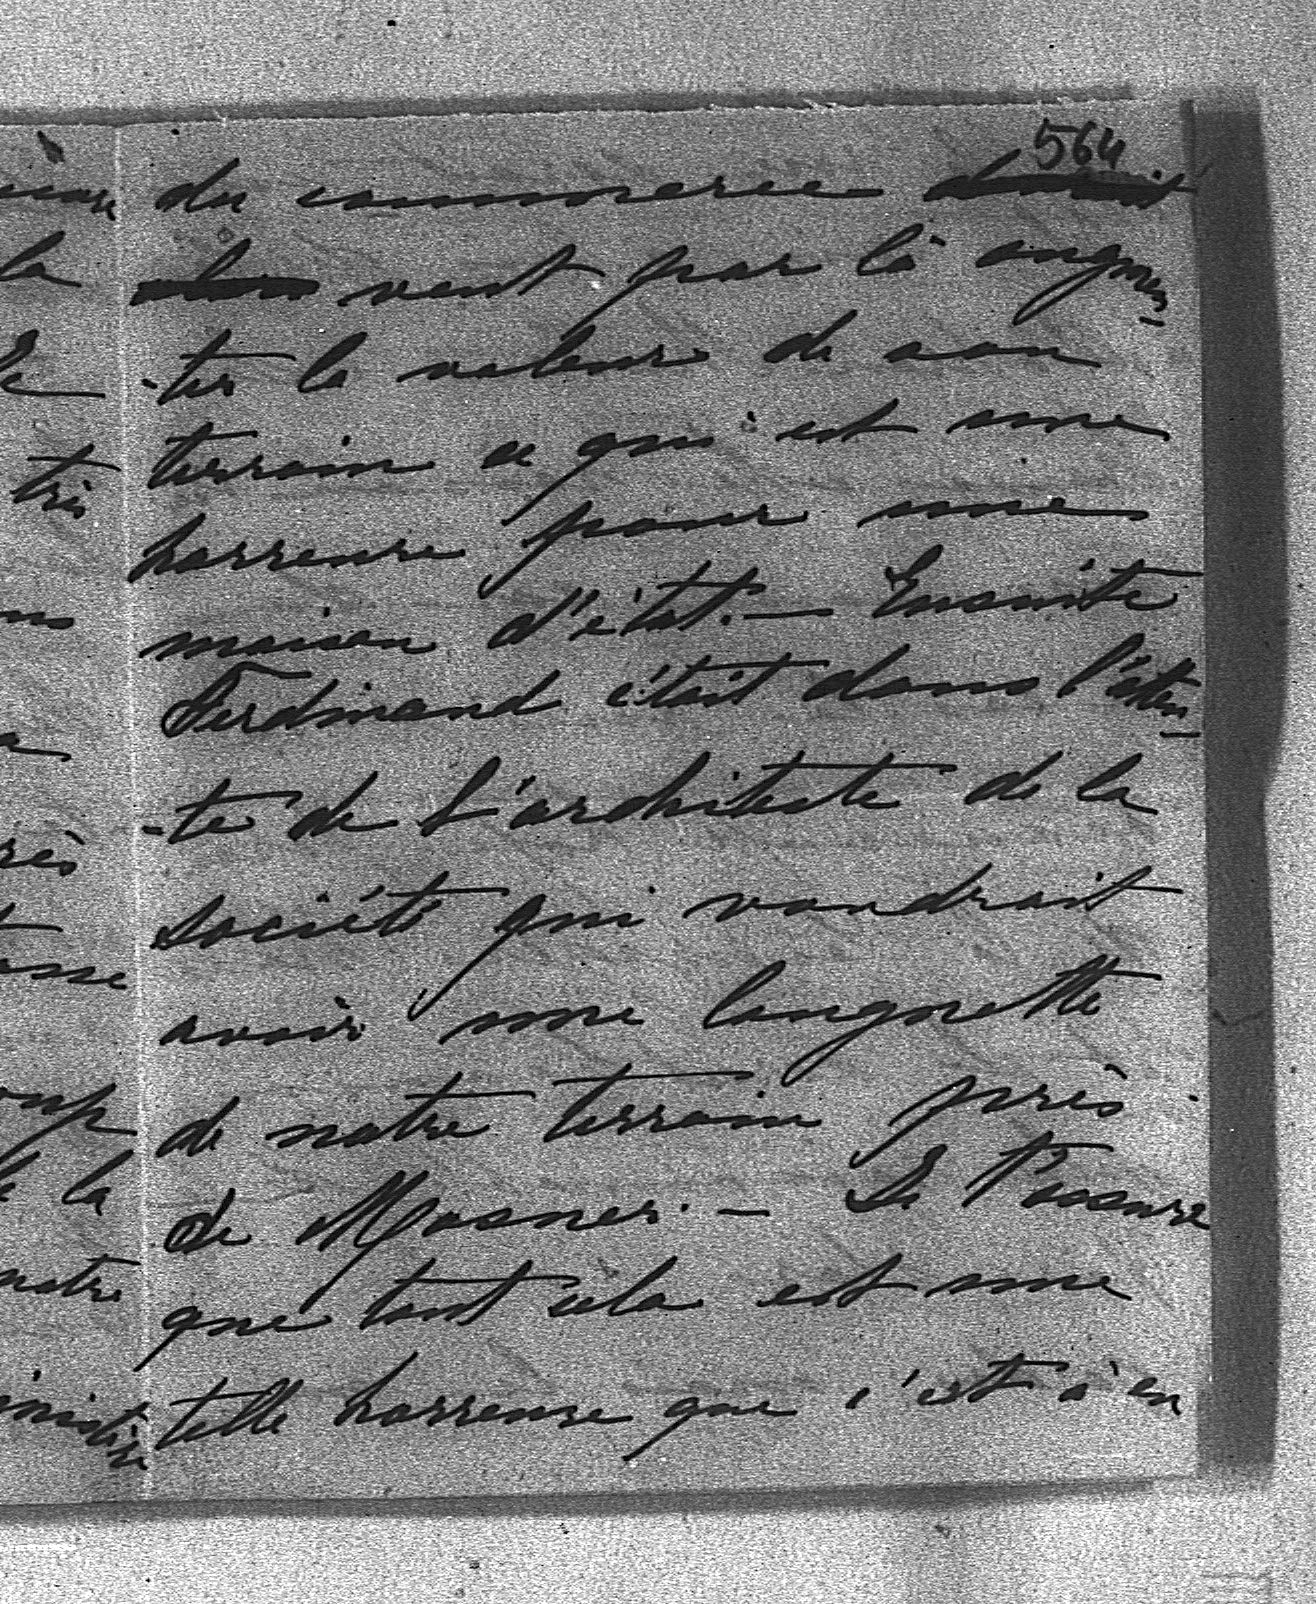 564
du commerce
veut par là augmen-
-ter la valeur de son
terrain ce qui est une
horreure pour une
maison d'état. — Ensuite
Ferdinand était dans l'atten-
-te de l'architecte de la
société qui voudrait
avoir une languette
de notre terrain près
de Mosner. — Je t'assure
que tout cela est une
telle horreure que c'est à en
la
très
rès
la
notre